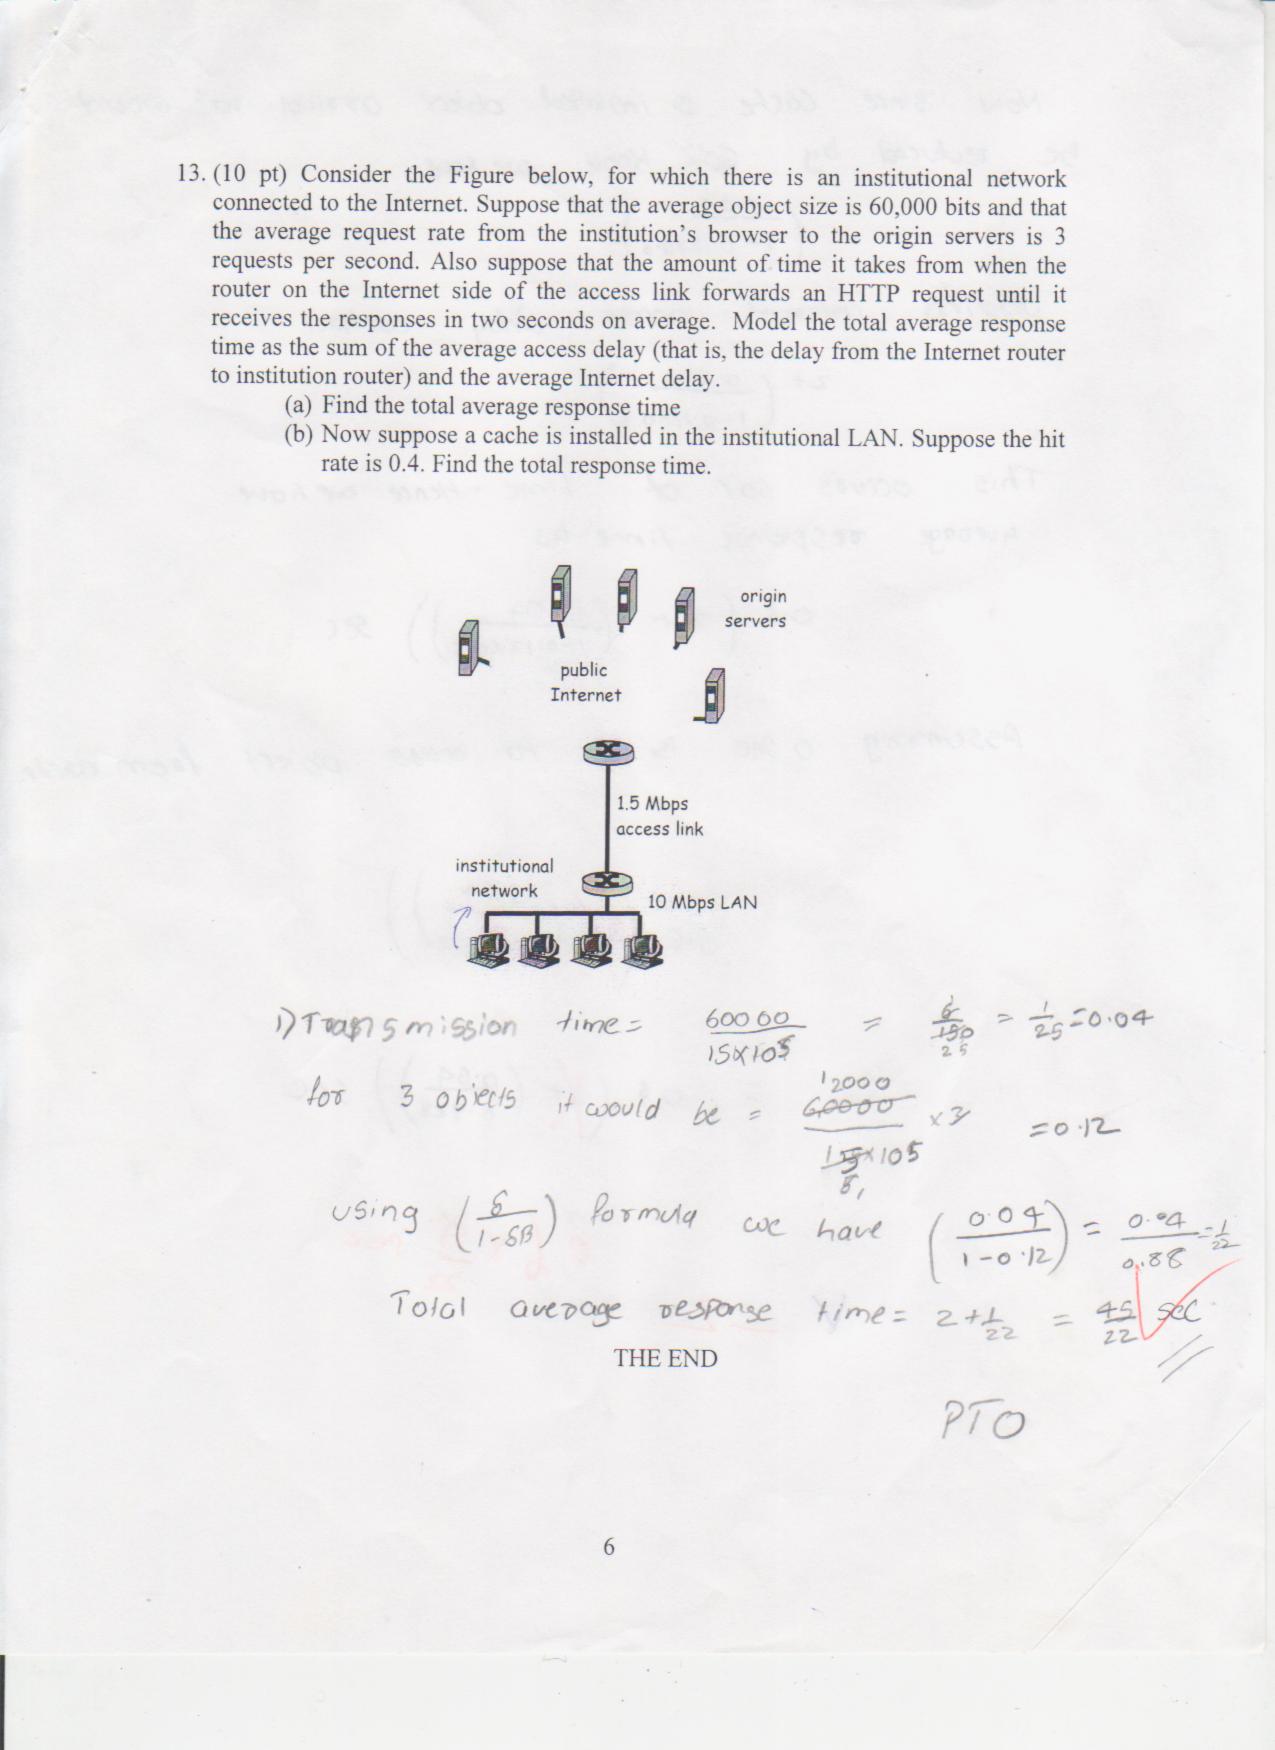 13. (10 pt) Consider the Figure below, for which there is an institutional network
connected to the Internet. Suppose that the average object size is 60,000 bits and that
the average request rate from the institution's browser to the origin servers is 3
requests per second. Also suppose that the amount of time it takes from when the
router on the Internet side of the access link forwards an HTTP request until it
receives the responses in two seconds on average. Model the total average response
time as the sum of the average access delay (that is, the delay from the Internet router
to institution router) and the average Internet delay.
(a) Find the total average response time
(b) Now suppose a cache is installed in the institutional LAN. Suppose the hit
rate is 0.4. Find the total response time.
origin
servers
public
Internet
1.5 Mbps
access link
institutional
network
10 Mbps LAN
1) Transmission time = 60000 / 15×10^5 = 6/150 = 1/25 = 0.04
for 3 objects it would be = 60000 / 15×10^5 × 3 = 0.12
using (δ / 1-δB) formula we have (0.04 / 1-0.12) = 0.04 / 0.88 = 1/22
Total average response time = 2 + 1/22 = 45/22 sec
THE END
PTO
6